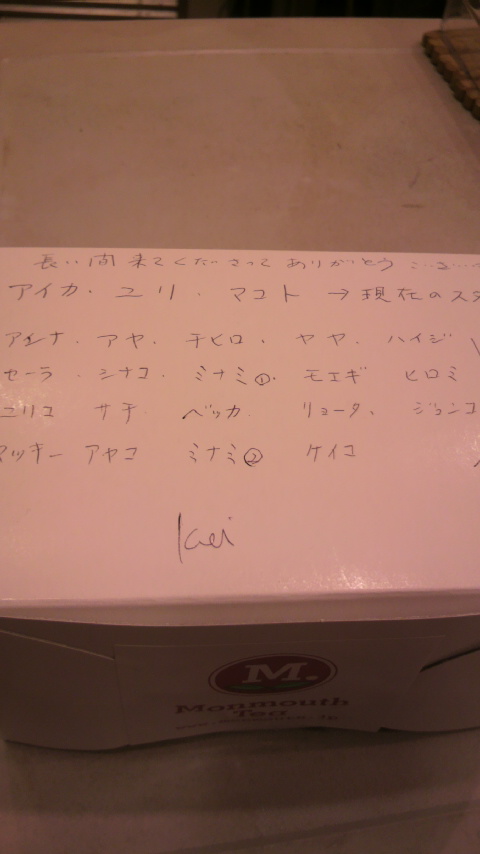 長い間 来てくださって ありがとうござい
アイカ・ユリ・マコト → 現在のスタ
アヤ・チヒロ・ヤヤ・ハイジ
セーラ・シナコ・ミナミ①・モエギ ヒロミ
ユリコ サチ ベッカ リョータ、ジュンコ
マッキー アヤコ ミナミ② ケイコ
Kei
M.
Monmouth
Tea